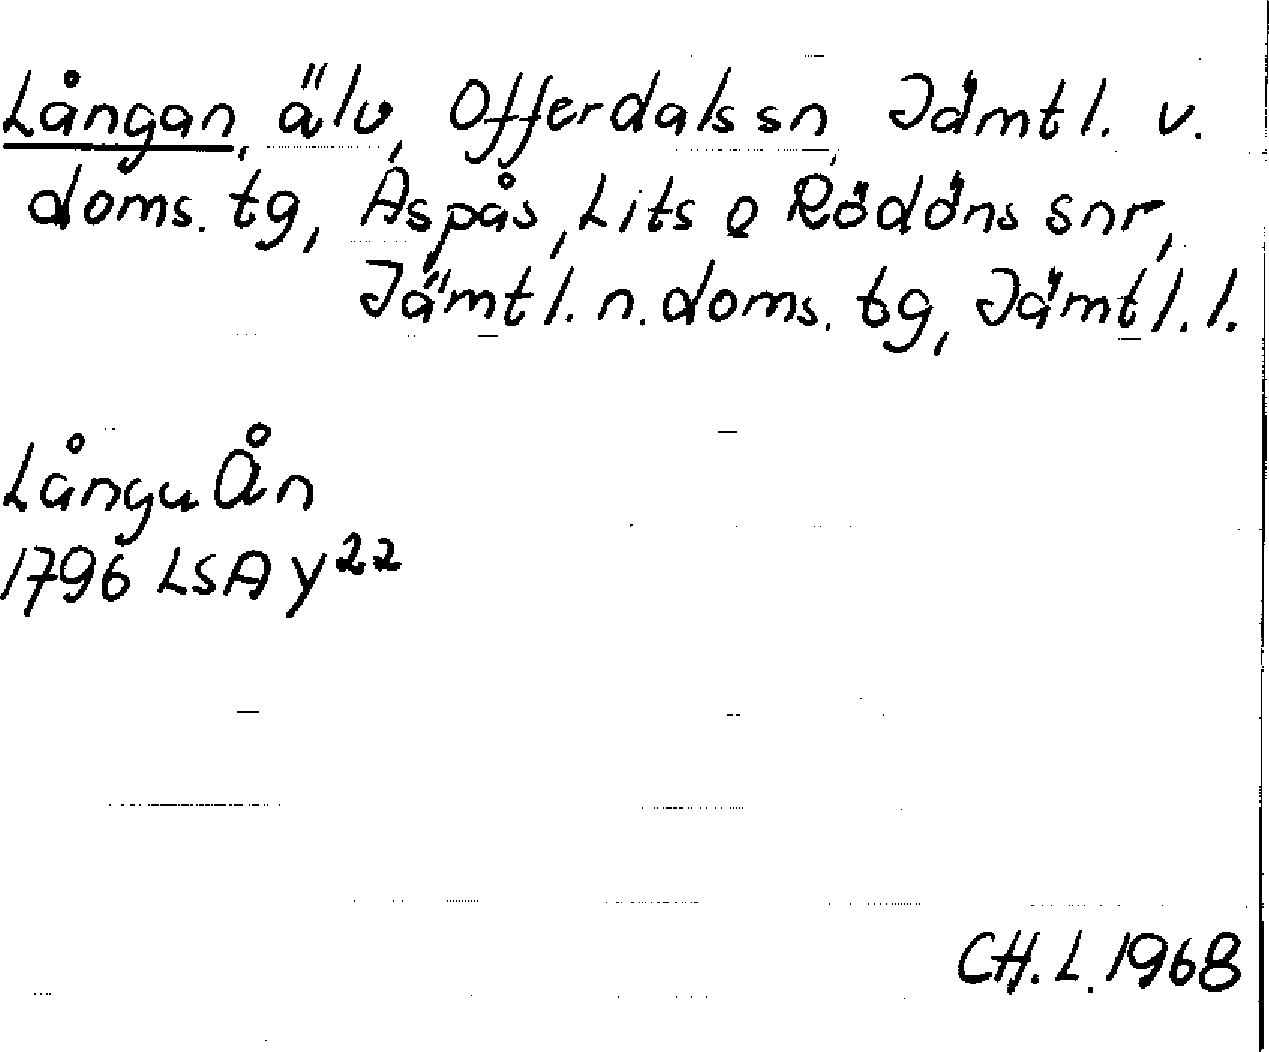 Långan, älv, Offerdals sn, Jämtl. v.
doms. tg, Aspås, Lits o Rödöns snr,
Jämtl. n. doms. tg, Jämtl. l.
Långu Ån
1796 LSA Y22
CH. L. 1968